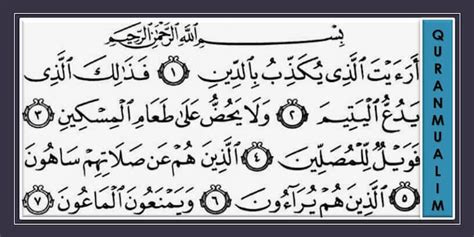 بِسْمِ اللَّهِ الرَّحْمَٰنِ الرَّحِيمِ
أَرَءَيْتَ ٱلَّذِى يُكَذِّبُ بِٱلدِّينِ ١ فَذَٰلِكَ ٱلَّذِى
يَدُعُّ ٱلْيَتِيمَ ٢ وَلَا يَحُضُّ عَلَىٰ طَعَامِ ٱلْمِسْكِينِ ٣
فَوَيْلٌ لِّلْمُصَلِّينَ ٤ ٱلَّذِينَ هُمْ عَن صَلَاتِهِمْ سَاهُونَ
٥ ٱلَّذِينَ هُمْ يُرَآءُونَ ٦ وَيَمْنَعُونَ ٱلْمَاعُونَ ٧
QURANMUALIM